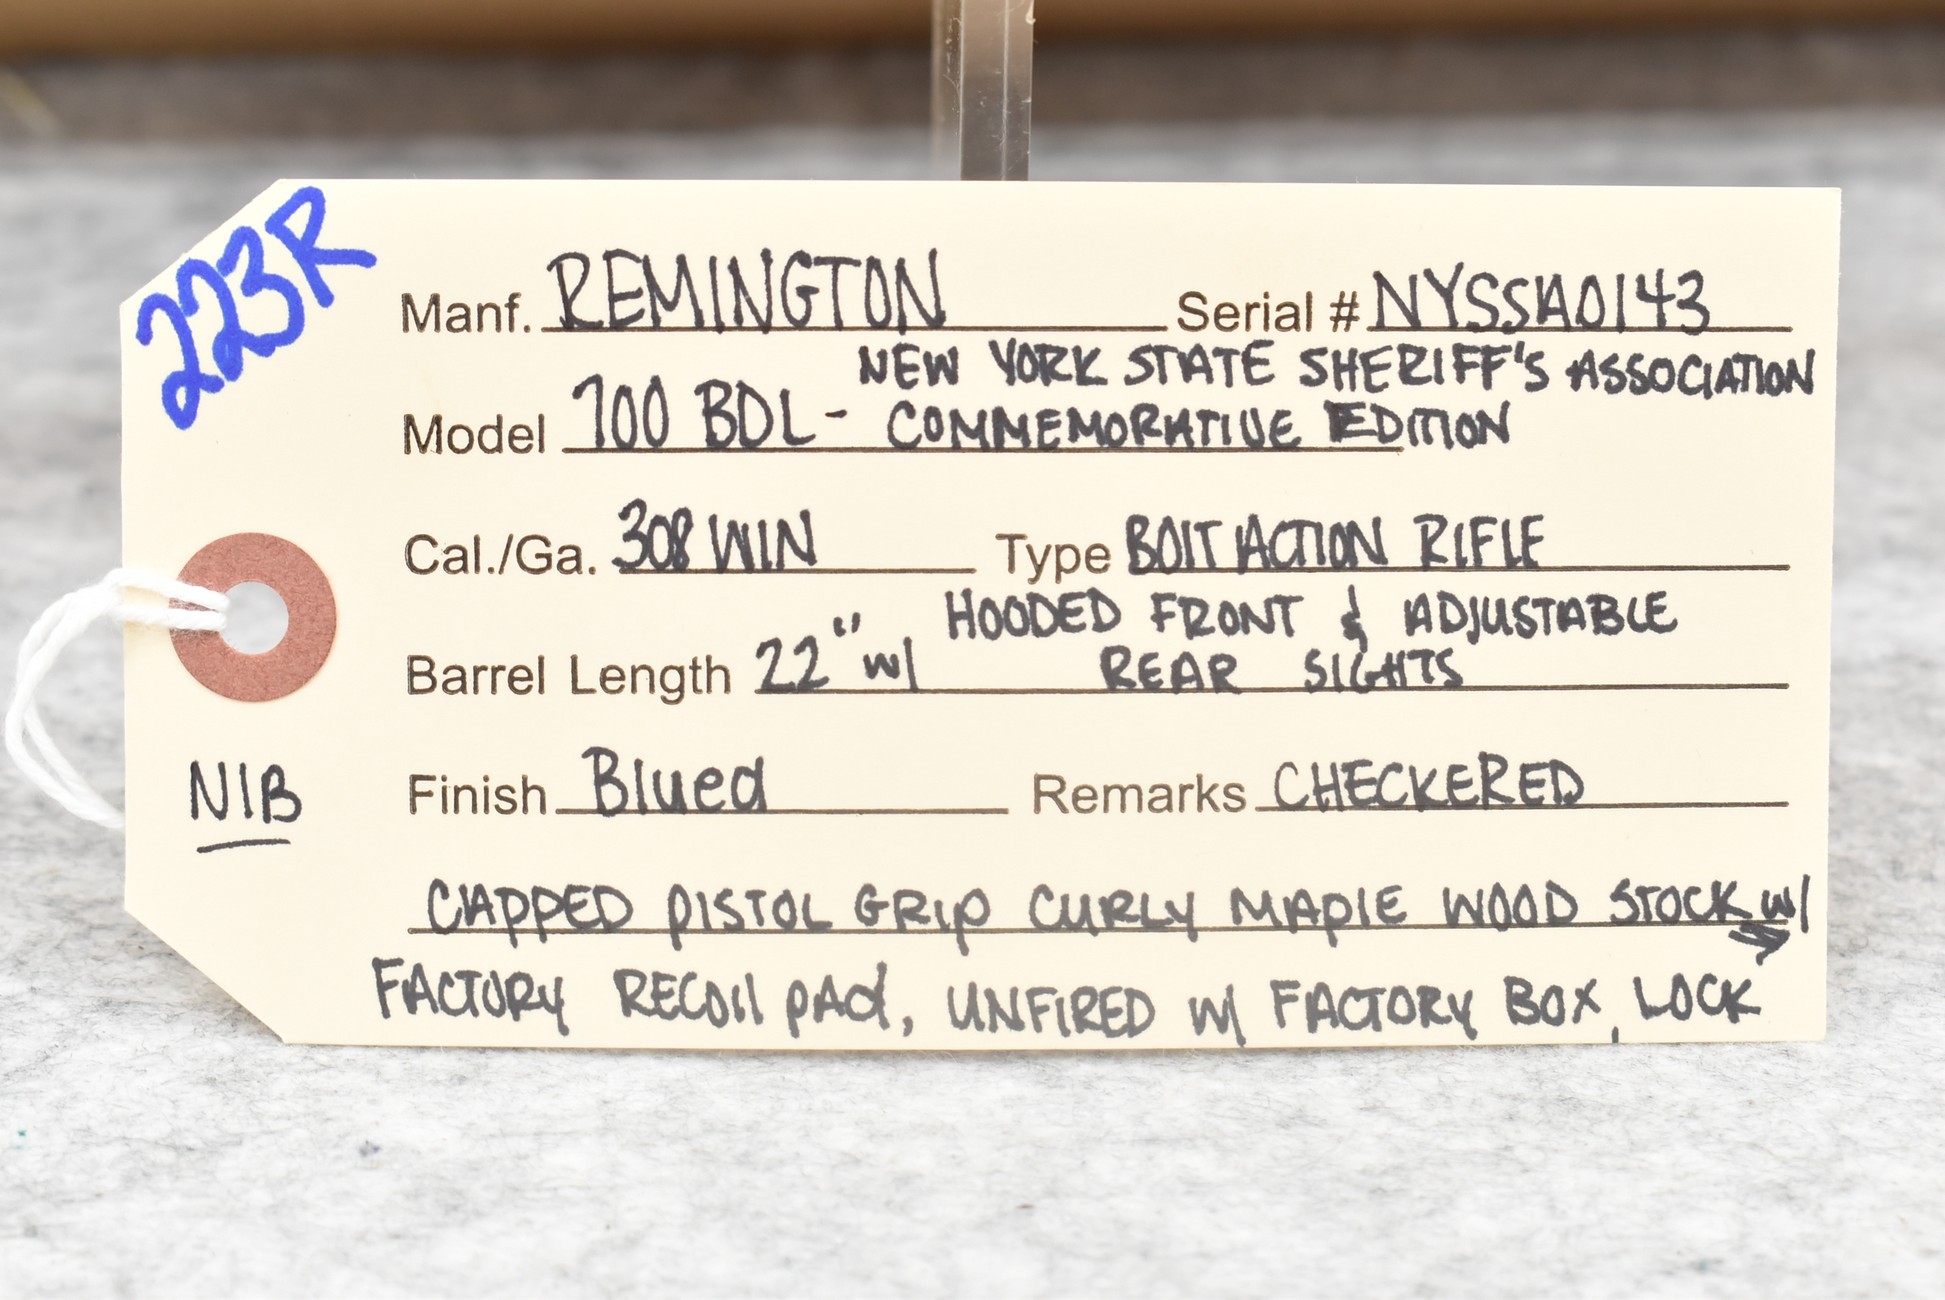 223R
Manf. REMINGTON Serial # NYSSA0143
NEW YORK STATE SHERIFF'S ASSOCIATION
Model 700 BDL - COMMEMORATIVE EDITION
Cal./Ga. 308 WIN Type BOLT ACTION RIFLE
HOODED FRONT & ADJUSTABLE
Barrel Length 22" w/ REAR SIGHTS
NIB
Finish Blued Remarks CHECKERED
CAPPED PISTOL GRIP CURLY MAPLE WOOD STOCK w/
FACTORY RECOIL PAD, UNFIRED w/ FACTORY BOX, LOCK